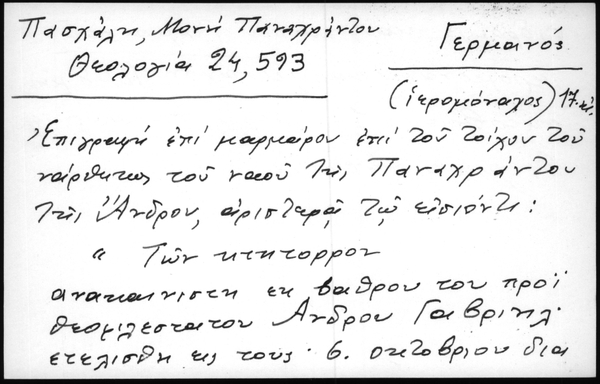 Πασχάλη, Μονή Παναχράντου
Θεολογία 24, 593
Γερμανός
(ἱερομόναχος) 17.
Ἐπιγραφή ἐπί μαρμάρου ἐπί τοῦ τοίχου τοῦ
νάρθηκος τοῦ ναοῦ τῆς Παναχράντου
τῆς Ἄνδρου, ἀριστερᾷ τῷ εἰσιόντι:
“ Τῶν κτητορρον
ανακαινιστη εκ βαθρου του προϊ
θεοφιλεστατου Ανδρου Γαβριηλ·
ετελισθη εις τους · 6. οκτοβριου δια